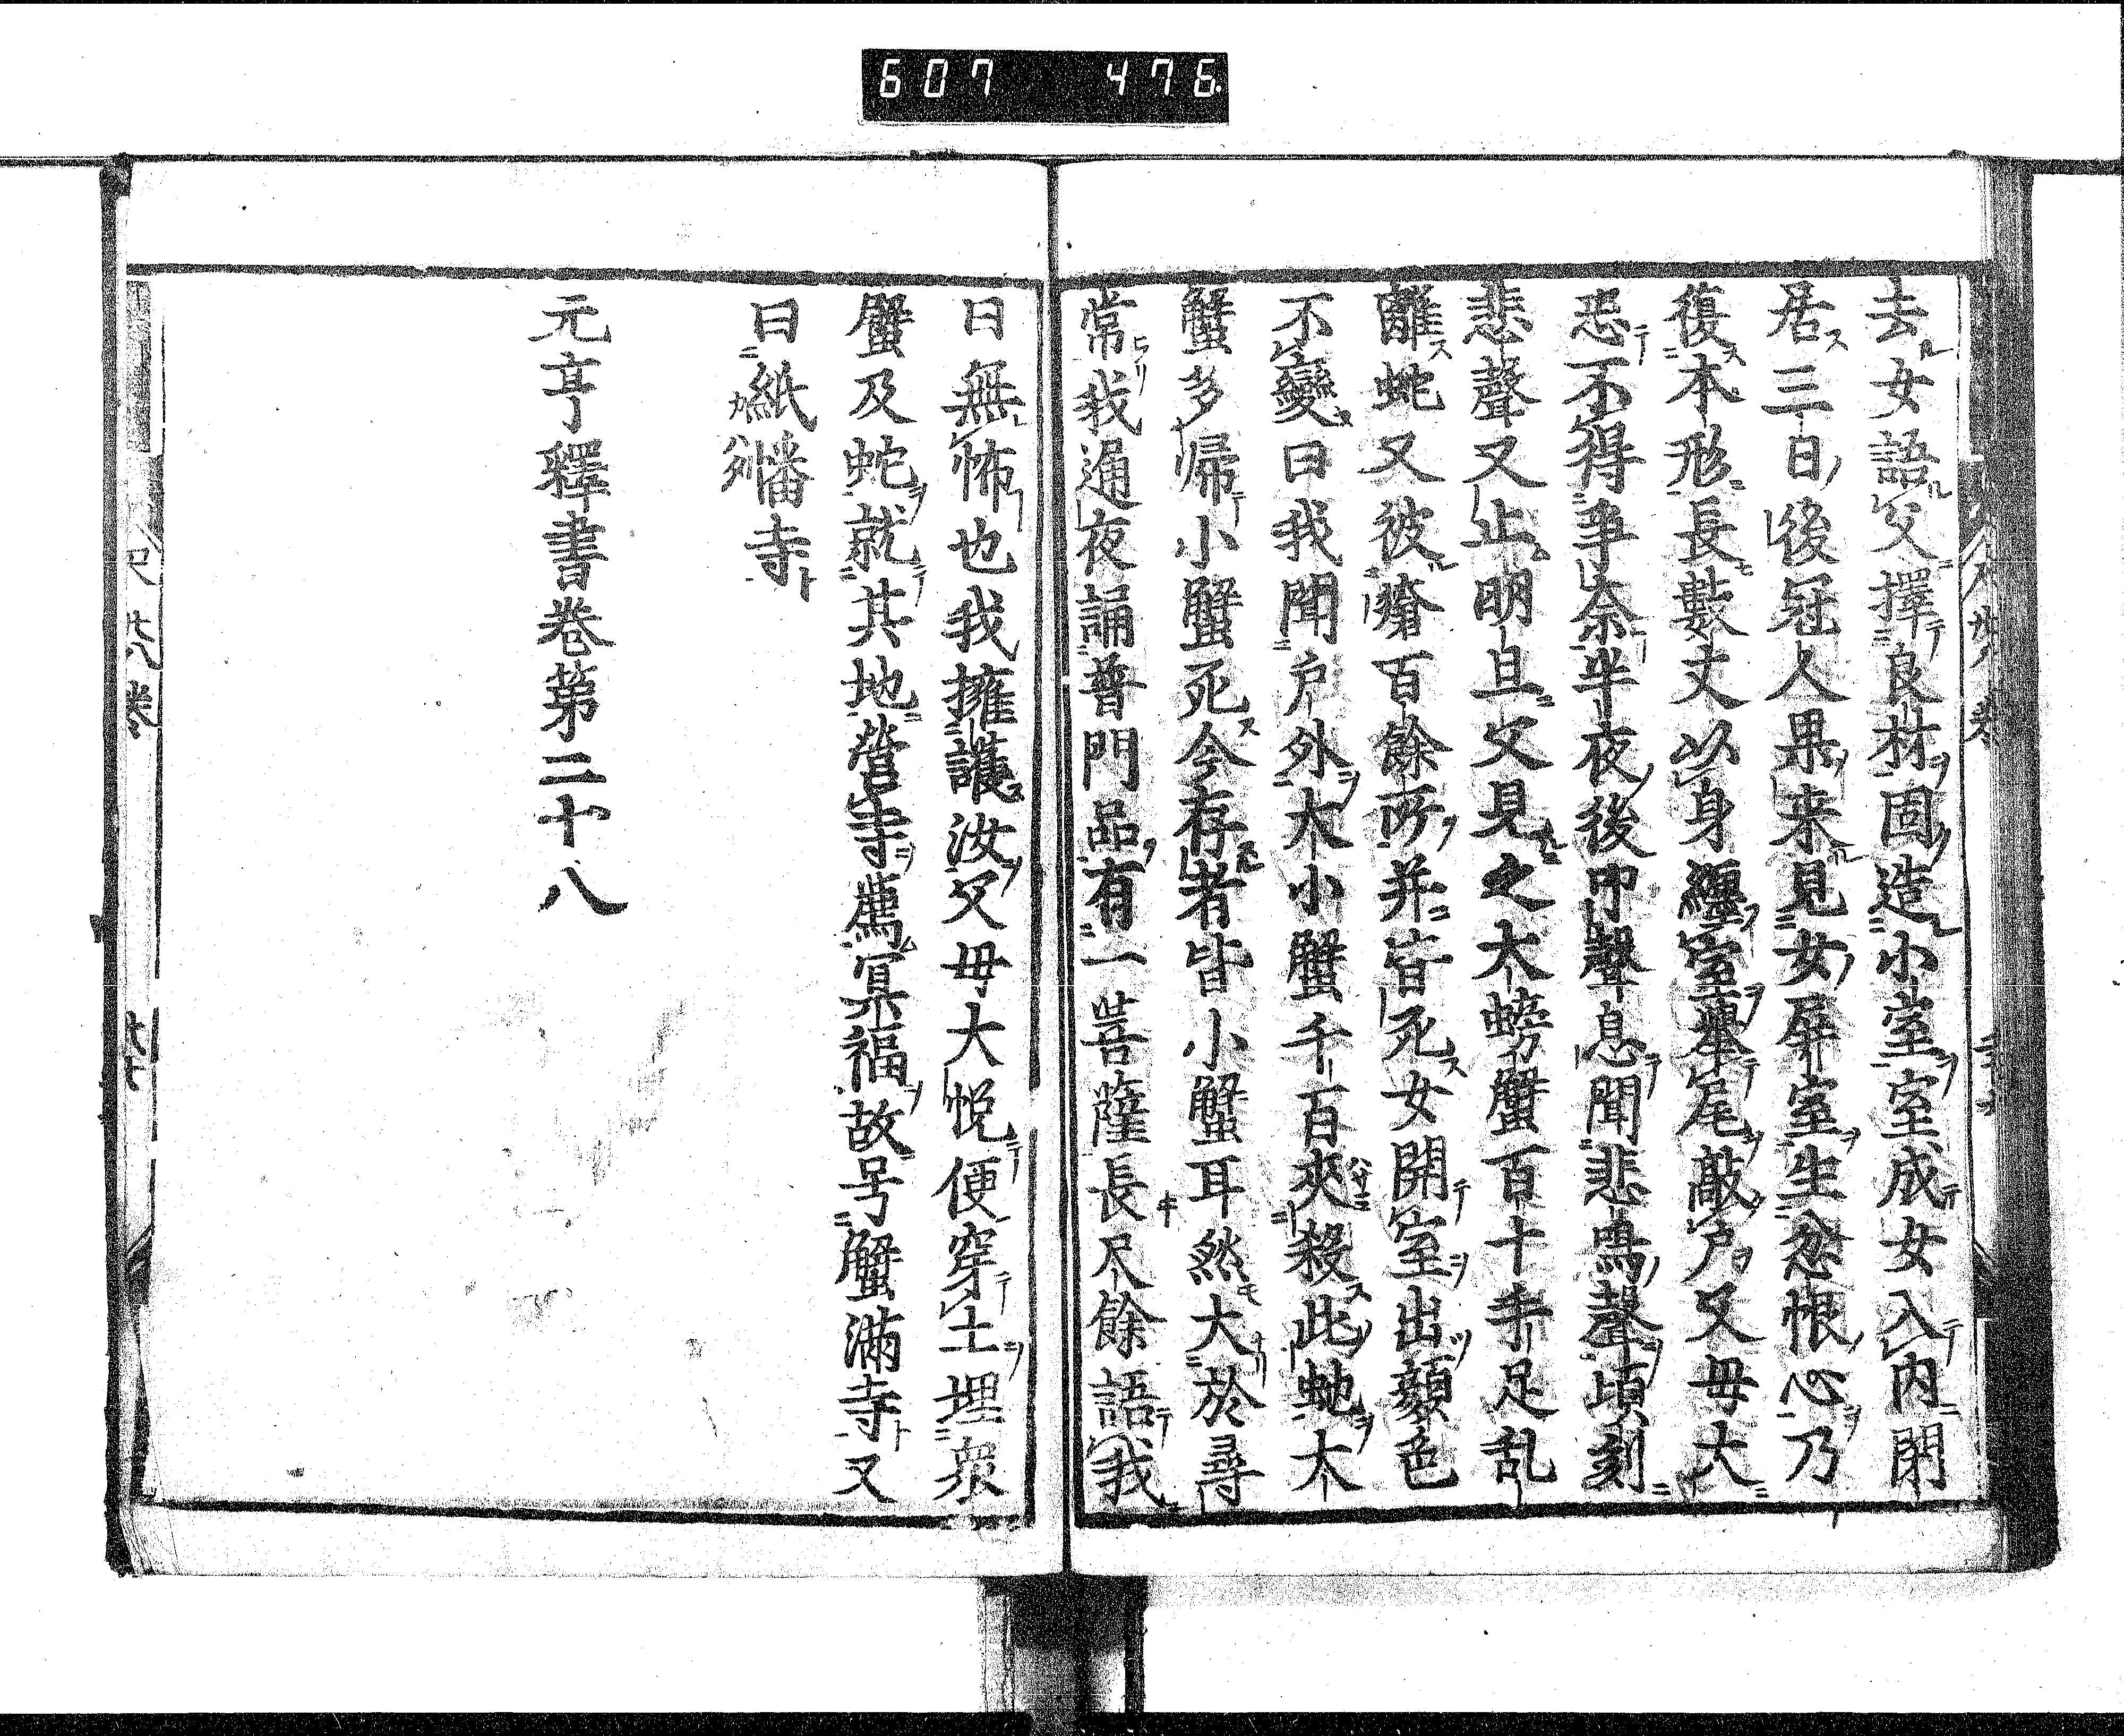 607 476
去女語父擇良材固造小室室成女入内閉
居三日後冠人果来見女屏室生忿恨心乃
復本形長數丈以身纏室擧尾敲戸父毋大
恐不得爭奈半夜後叩聲息聞悲鳴聲頃刻
悲聲又止明旦父見之大螃蟹百十手足乱
離蛇又彼瘡百餘所并皆死女開室出顔色
不變曰我聞戸外大小蟹千百夾殺此虵大
蟹多帰小蟹死今存者皆小蟹耳然大於尋
常我通夜誦普門品有一菩薩長尺餘語我
曰無怖也我擁護汝父毋大悦便穿土埋衆
蟹及蛇就其地營寺薦冥福故号蟹滿寺又
曰紙幡寺
元亨釋書卷第二十八